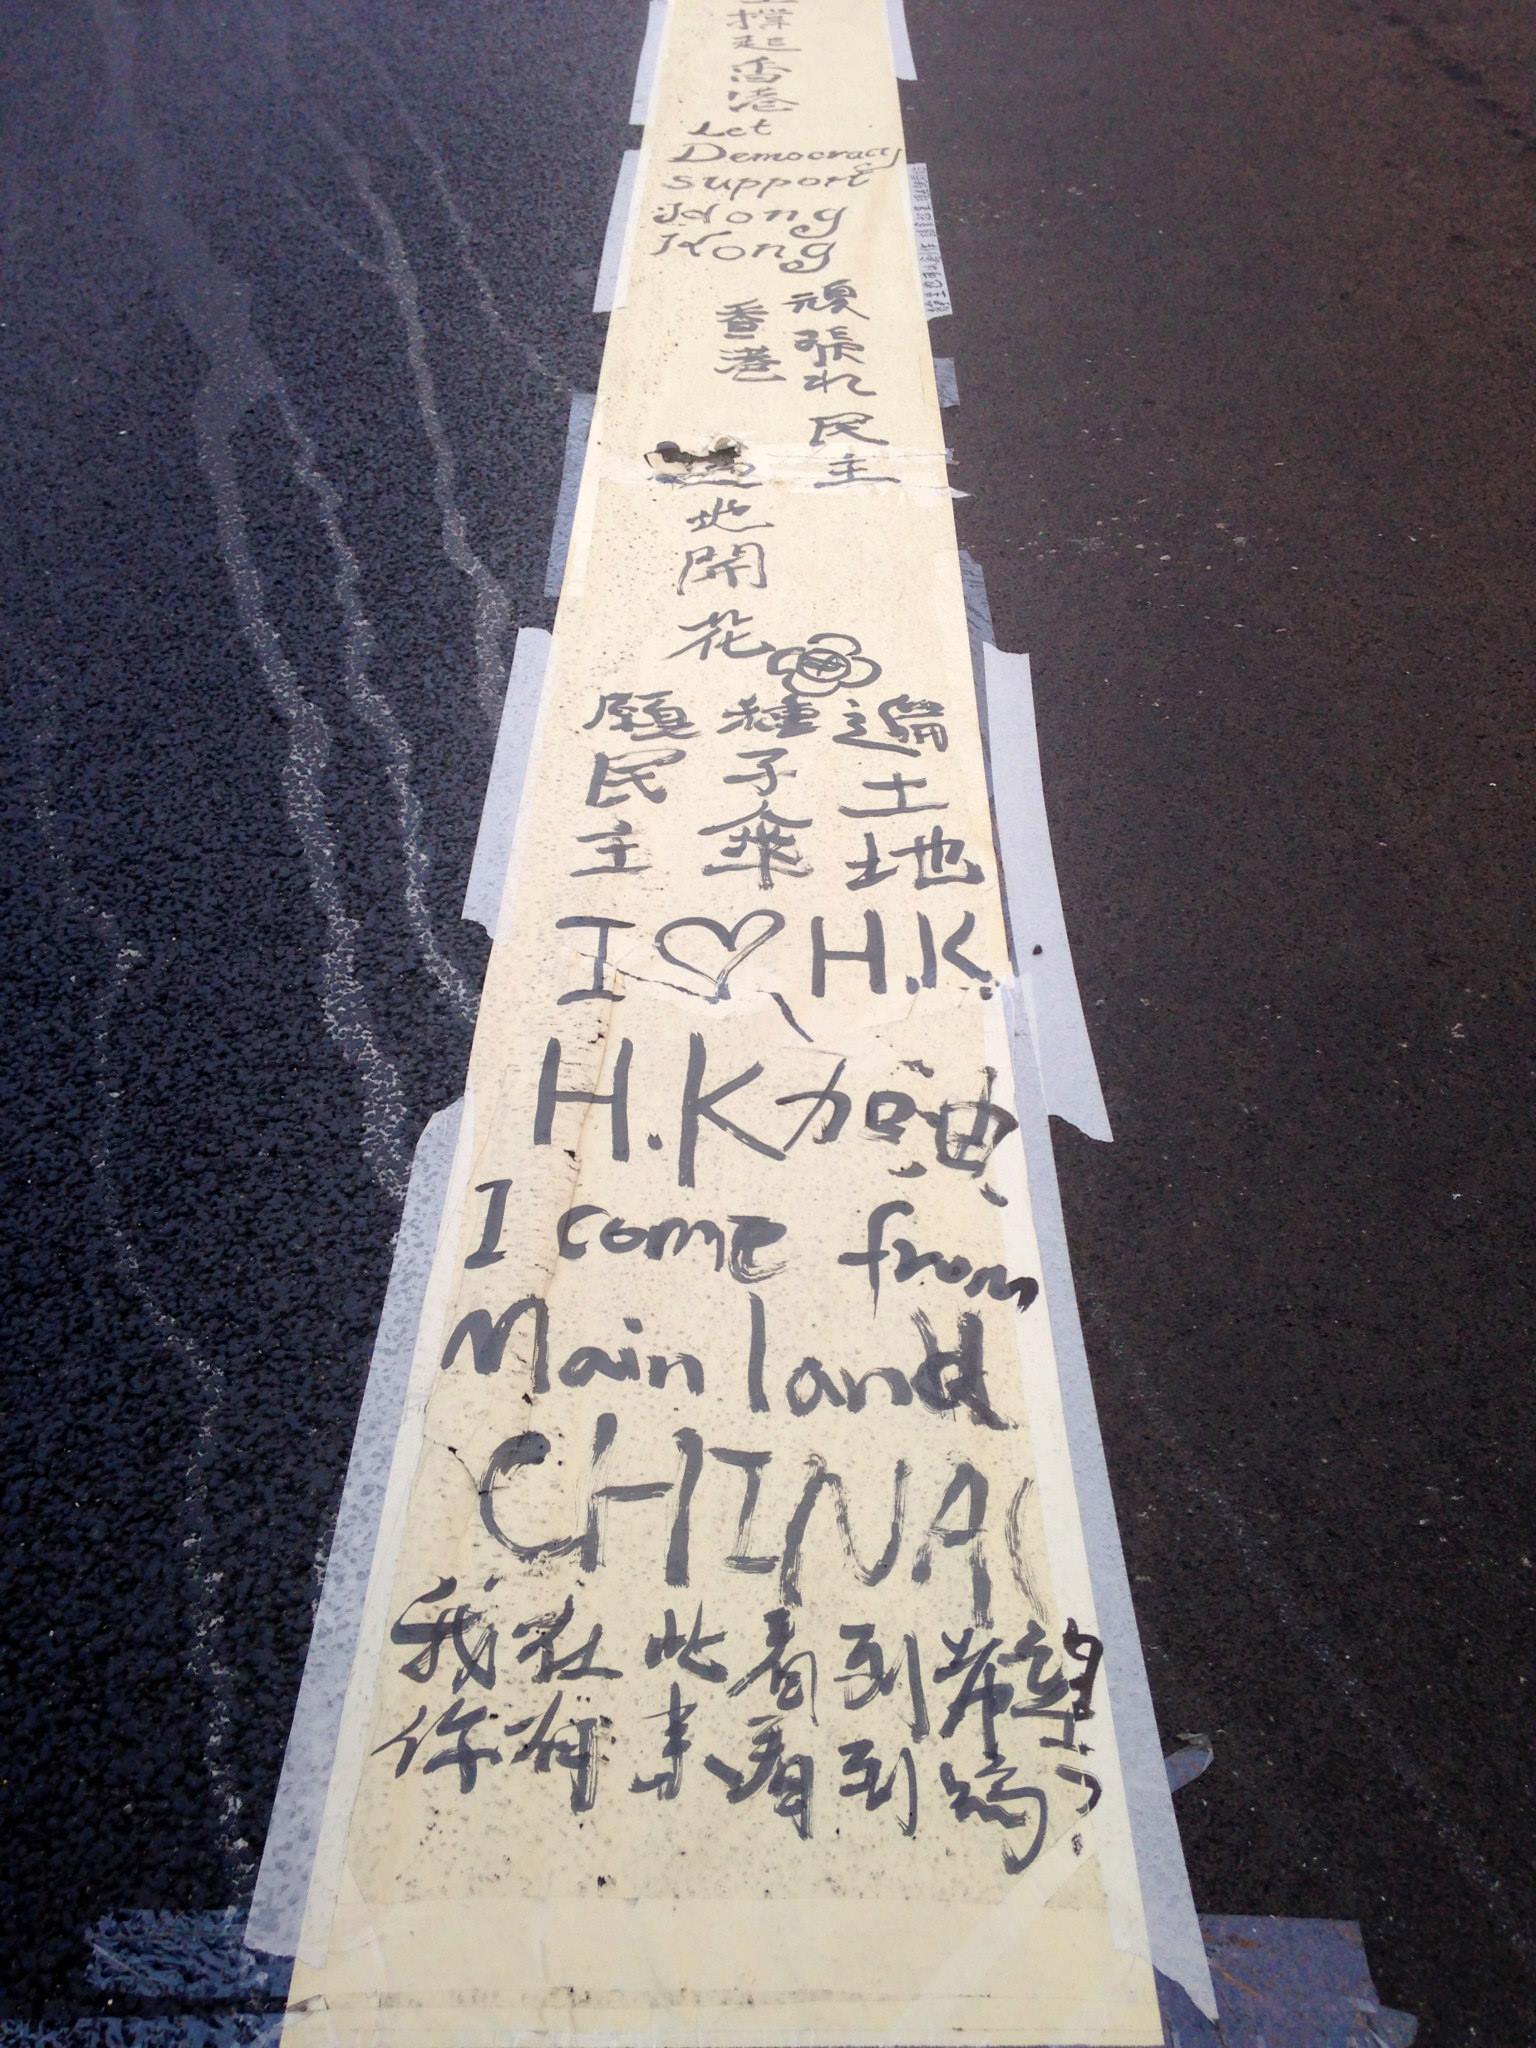 撐起香港
Let
Democracy
support
Hong
Kong
頑張れ民主
香港
遍地開花
願民主
種子傘
遍土地
I ♡ H.K.
H.K加油
I come from
Mainland
CHINA(
我在此看到希望
你有来看到嗎?